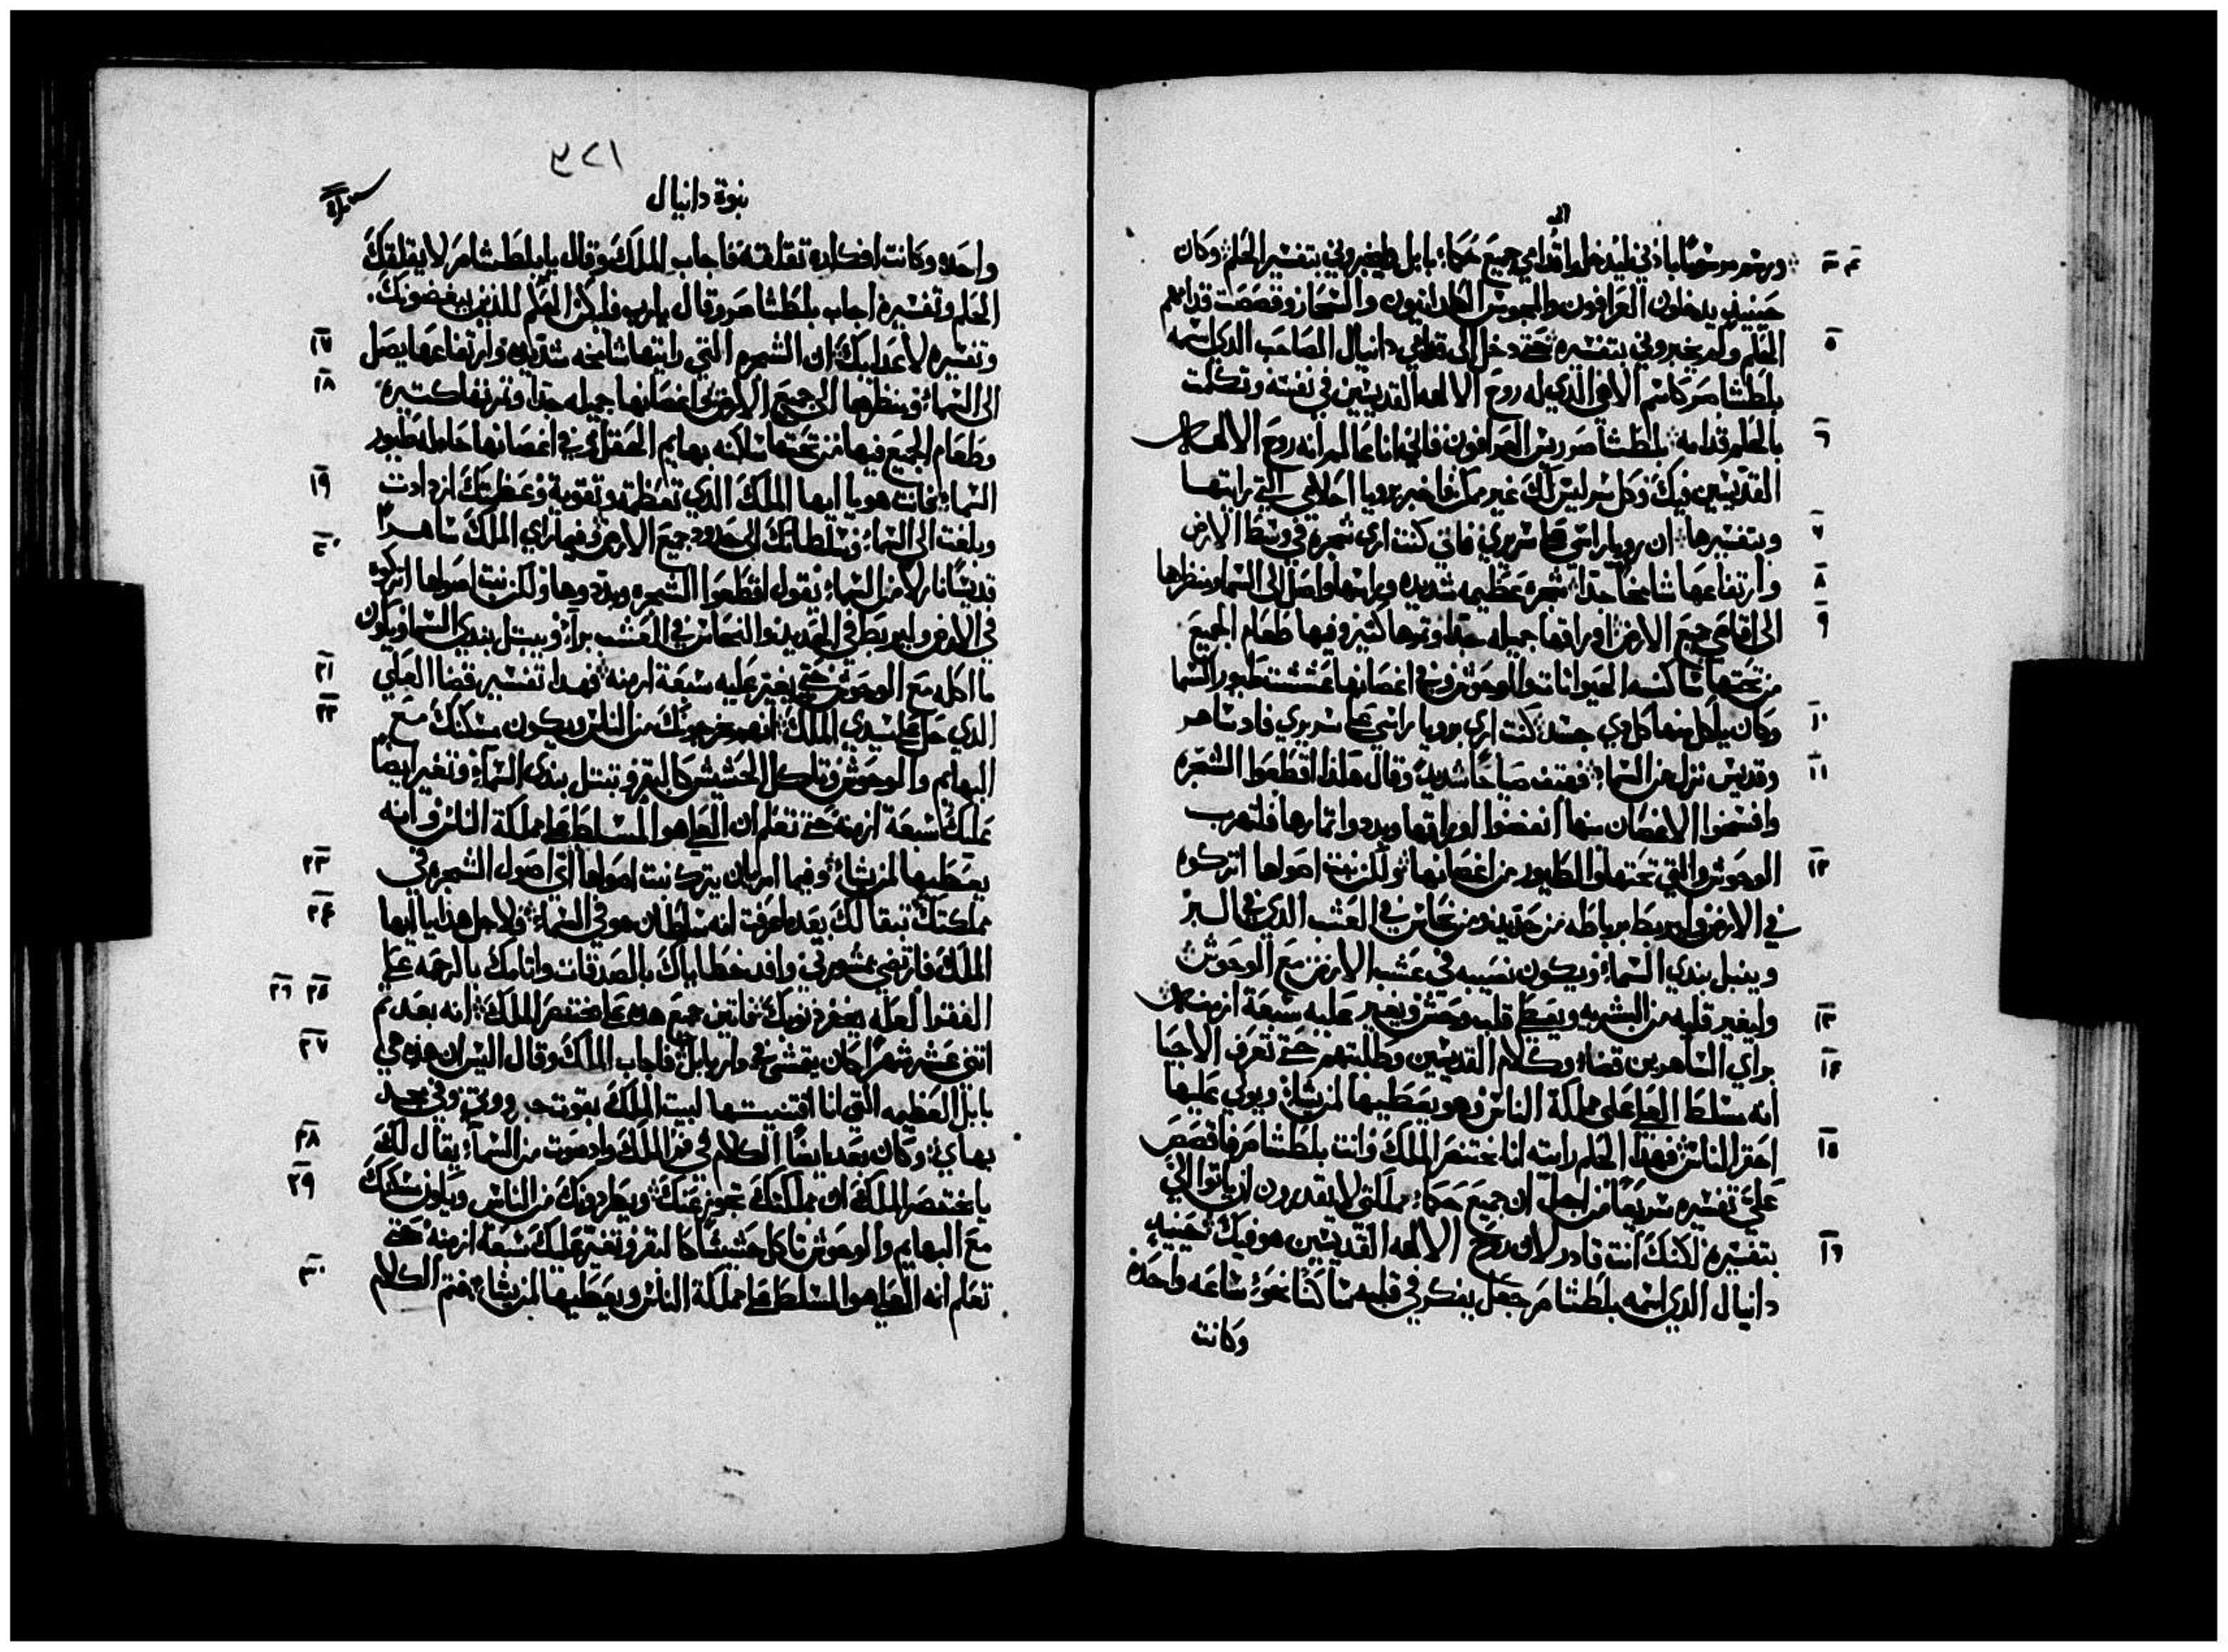 الى
٣ ٤ ورسم مرسومًا باذني ليدخلوا قدامي جميع حكماء بابل ليخبروني بتفسير الحلم وكان
حينيذٍ يدخلون العرافون والمجوس الكلدانيون والسحار وقصصت قدامهم
٥ الحلم ولم يخبروني بتفسيره حتى دخل الى قدامي دانيال الصاحب الذي اسمه
بلطشاصر كاسم الاهي الذي له روح الالهه القديسين في نفسه وتكلمت
٦ بالحلم قدامه بلطشاصر ريس العرافون فاني انا عالم انه روح الالهه
القديسين فيك وكل سر ليس لك غير ممكن فاخبر برويا احلامي التي رايتها
٧ وبتفسيرها ان رويا راسي على سريري فاني كنت ارى شجرة في وسط الارض
٨ وارتفاعها شامخًا جدًا شجره عظيمه شديده وراسها واصل الى السما ومنظرها
٩ الى اقاصي جميع الارض اوراقها جميله جدًا وثمرها كثير وفيها طعام الجميع
من تحتها ساكنه الحيوانات والوحوش وفي اغصانها عششت طيور السما
١٠ وكان ياكل منها كل ذي جسد كنت ارى برويا راسي على سريري فاد ساهر
١١ وقديس نزل من السماء فهتف صياحًا شديدًا وقال هكذا اقطعوا الشجره
وافسخوا الاغصان منها انفضوا اوراقها وبددوا اثمارها فلتهرب
١٢ الوحوش التي تحتها والطيور من اغصانها ولكن نبت اصولها اتركوه
في الارض وليربط برباطه من حديد ومن نحاس في العشب الذي في البر
وينبل بندي السماء ويكون نصيبه في عشب الارض مع الوحوش
١٣ وليغير قلبه من البشريه ويعطى قلب وحش ويغير عليه سبعة ازمنه
١٤ براي الساهرين قضاء وكلام القديسين وطلبتهم حتى تعرف الاحيا
انه مسلط العلي على مملكة الناس وهو يعطيها لمن يشاء ويولي عليها
١٥ احقر الناس فهذا الحلم رايته انا بختنصر الملك وانت بلطشاصر فاقصص
علي تفسيره سريعًا من اجل ان جميع حكماء مملكتي لا يقدرون ان ياتوا الي
١٦ بتفسيره لكنك انت قادر لان روح الالهه القديسين هو فيك حينيذٍ
دانيال الذي اسمه بلطشاصر جعل يفكر في قلبه ساكتًا نحو ساعه واحده
وكانت
١٢٤
نبوة دانيال
واحده وكانت افكاره تقلقه فاجاب الملك وقال يا بلطشاصر لا يقلقك
الحلم وتفسيره اجاب بلطشاصر وقال يا رب فليكن الحلم للذين يبغضونك
١٧ وتفسيره لاعدايك ان الشجره التي رايتها شامخه شديده وارتفاعها يصل
١٨ الى السماء ومنظرها الى جميع الارض واغصانها جميله جدًا وثمرتها كتيره
وطعام الجميع فيها من تحتها ساكنه بهايم الحقل وفي اغصانها حامله طيور
١٩ السماء فانت هو يا ايها الملك الذي تعظمت وتقوية وعظمتك ازدادت
٢٠ وبلغت الى السماء وسلطانك الى حدود جميع الارض وفيما راي الملك ساهرًا
قديسًا نازلًا من السماء يقول اقطعوا الشجره وبددوها ولكن نبت اصولها اتركوه
في الارض وليربط في الحديد والنحاس في العشب برًا ويبتل بندي السما ويكون
٢١ ماكله مع الوحوش حتى يغير عليه سبعة ازمنه فهدا تفسيره قضا العلي
٢٢ الذي حل على سيدي الملك انهم يخرجونك من الناس ويكون مسكنك مع
البهايم والوحوش وتاكل الحشيش كالبقر وتبتل بندي السماء وتغير ايضًا
عليك سبعة ازمنه حتى تعلم ان العلي هو المسلط على مملكة الناس وانه
٢٣ يعطيها لمن يشاء وفيما امر بان يترك نبت اصولها اي اصول الشجره في
٢٤ مملكتك تبقا لك بعد ما عرفت انه سلطان هو في السماء ولاجل هذا يا ايها
الملك فارتضي بمشورتي وافد خطاياك بالصدقات واثامك بالرحمه على
٢٥ ٢٦ الفقرا لعله يغفر ذنوبك فاتين جميع هده على بختنصر الملك انه بعد تم
٢٧ اتنى عشر شهرًا كان يتمشى في دار بابل فاجاب الملك وقال اليس ان هذه هي
بابل العظيمه التي انا اقتنيتها لبيت الملك بقوت جبروتي وفي مجد
٢٨ بهاي وكان بعد ايضًا الكلام في فم الملك واد صوت من السماء يقال لك
٢٩ يا بختنصر الملك ان مملكتك تجوز عنك ويطردونك من الناس ويكون سكنك
مع البهايم والوحوش تاكل حشيشًا كالبقر وتغير عليك سبعة ازمنه حتى
٣٠ تعلم انه العلي هو المسلط على مملكة الناس ويعطيها لمن يشاء فتم الكلام